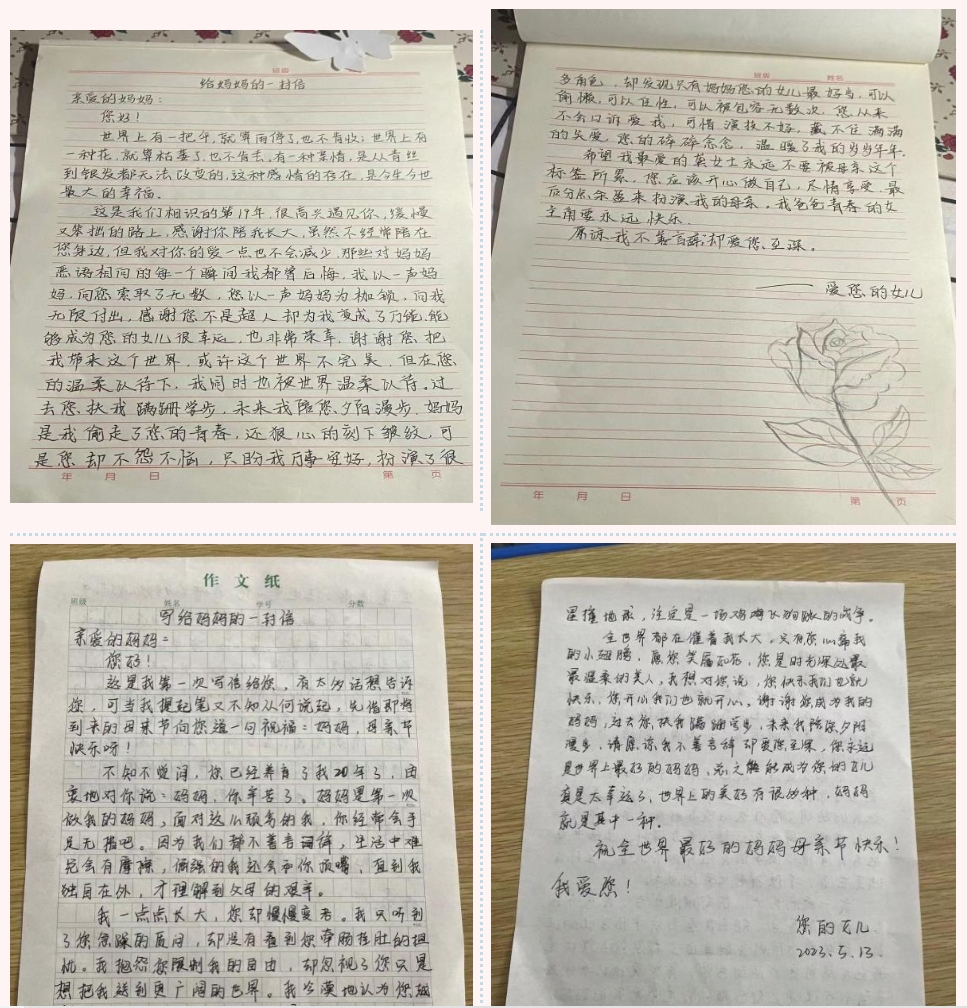 班级
给妈妈的一封信
亲爱的妈妈：
您好！
世界上有一把伞，就算雨停了，也不肯收；世界上有
一种花，就算枯萎了，也不肯去，有一种亲情，是从青丝
到银发都无法改变的，这种感情的存在，是今生今世
最大的幸福。
这是我们相识的第19年，很高兴遇见你，缓慢
又笨拙的路上，感谢你陪我长大，虽然不经常陪在
您身边，但我对你的爱一点也不会减少，那些对妈妈
恶语相向的每一个瞬间我都曾后悔，我以一声妈
妈，向您索取了无数，您以一声妈妈为枷锁，向我
无限付出，感谢您不是超人却为我变成了万能，能
够成为您的女儿很幸运，也非常荣幸，谢谢您把
我带来这个世界，或许这个世界不完美，但在您
的温柔以待下，我同时也被世界温柔以待。过
去您扶我蹒跚学步，未来我陪您夕阳漫步，妈妈
是我偷走了您的青春，还狠心的刻下皱纹，可
是您却不怨不恼，只盼我万事安好，扮演了很
年 月 日 第 页
班级 姓名
多角色，却发现只有妈妈您的女儿最好当，可以
偷懒，可以任性，可以被包容无数次，您从来
不会口诉爱我，可惜演技不好，藏不住满满
的关爱，您的碎碎念念，温暖了我的岁岁年年。
希望我最爱的英女士永远不要被母亲这个
标签所累，您应该开心做自己，尽情享受，最
后分点余盈来扮演我的母亲。我爸爸青春的女
主角要永远快乐。
原谅我不善言辞却爱您至深。
——爱您的女儿
年 月 日 第 页
作文纸
班级 姓名 学号 分数
写给妈妈的一封信
亲爱的妈妈：
您好！
这是我第一次写信给您，有太多话想告诉
您，可当我提起笔又不知从何说起，先借即将
到来的母亲节向您道一句祝福：妈妈，母亲节
快乐呀！
不知不觉间，您已经养育了我20年了，由
衷地对你说：妈妈，你辛苦了。妈妈是第一次
做我的妈妈，面对这么顽劣的我，你经常会手
足无措吧。因为我们都不善言辞，生活中难
免会有摩擦，倔强的我还会和你顶嘴，直到我
独自在外，才理解到父母的艰辛。
我一点点长大，您却慢慢变老。我只听到
了您急躁的质问，却没有看到您牵肠挂肚的担
忧。我抱怨您限制我的自由，却忽视了您只是
想把我送到更广阔的世界。我冷漠地认为您
星撞地球，注定是一场鸡飞狗跳的战争。
全世界都在催着我长大，只有您心疼我
的小翅膀，愿您笑靥如花，您是时光深处最
最温柔的美人，我想对您说，您快乐我们也就
快乐，您开心我们也就开心。谢谢您成为我的
妈妈，过去您扶我蹒跚学步，未来我陪您夕阳
漫步，请原谅我不善言辞却爱您至深，您永远
是世界上最好的妈妈，总之能成为您的女儿
真是太幸运了，世界上的美好有很多种，妈妈
就是其中一种。
祝全世界最好的妈妈母亲节快乐！
我爱您！
您的女儿
2023.5.13.